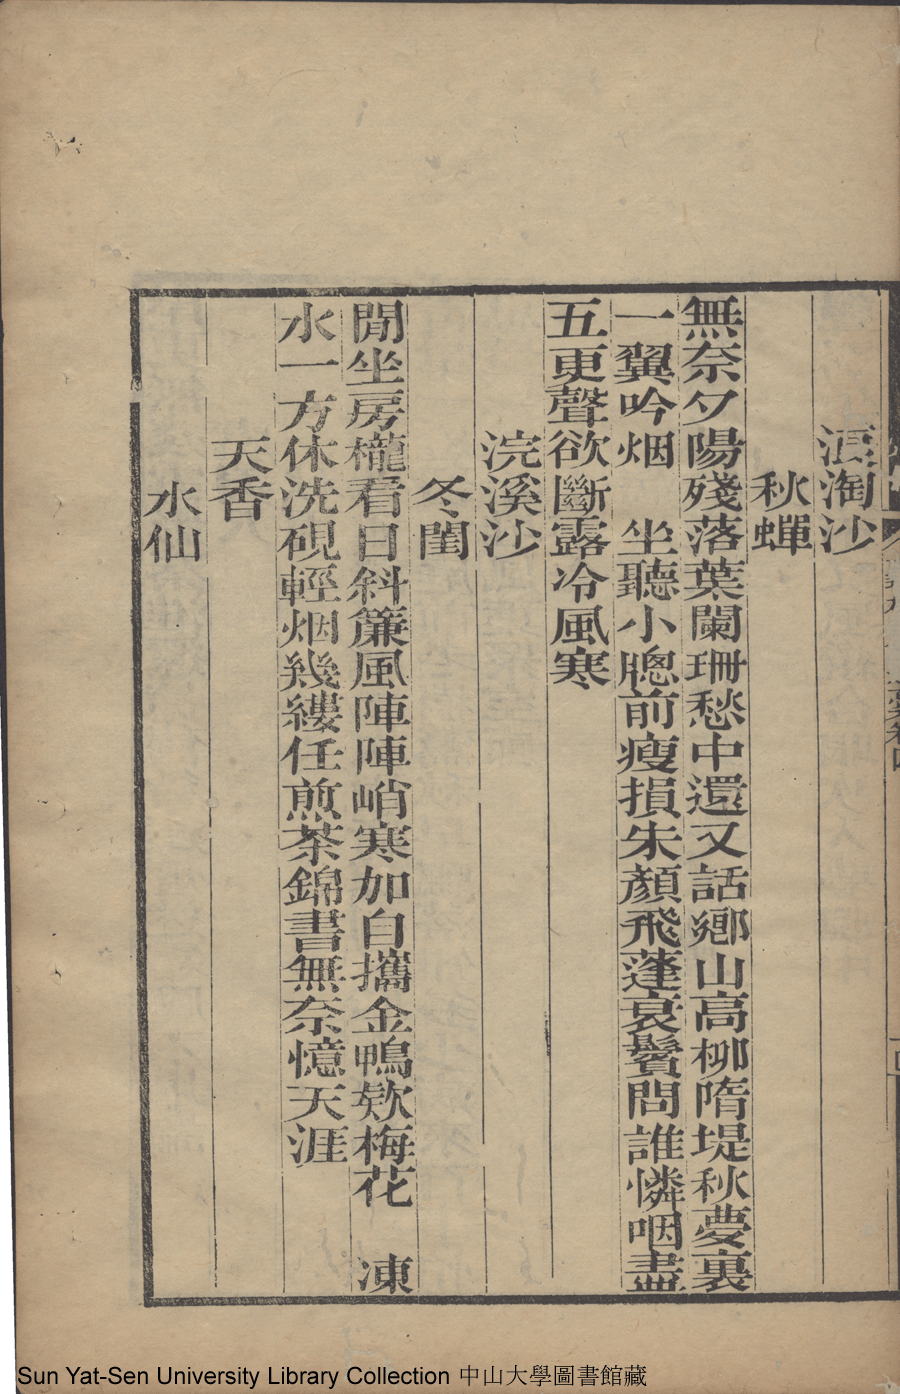 浪淘沙
秋蟬
無奈夕陽殘落葉闌珊愁中還又話鄕山高栁隋堤秋夣裏
一翼吟烟　坐聽小牕前瘦損朱顏飛蓬衰鬢問誰憐咽盡
五更聲欲斷露冷風寒
浣溪沙
冬閨
閒坐房櫳看日斜簾風陣陣峭寒加自攜金鴨欵梅花　凍
水一方休洗硯輕烟幾縷任煎茶錦書無奈憶天涯
天香
水仙
Sun Yat-Sen University Library Collection 中山大學圖書館藏